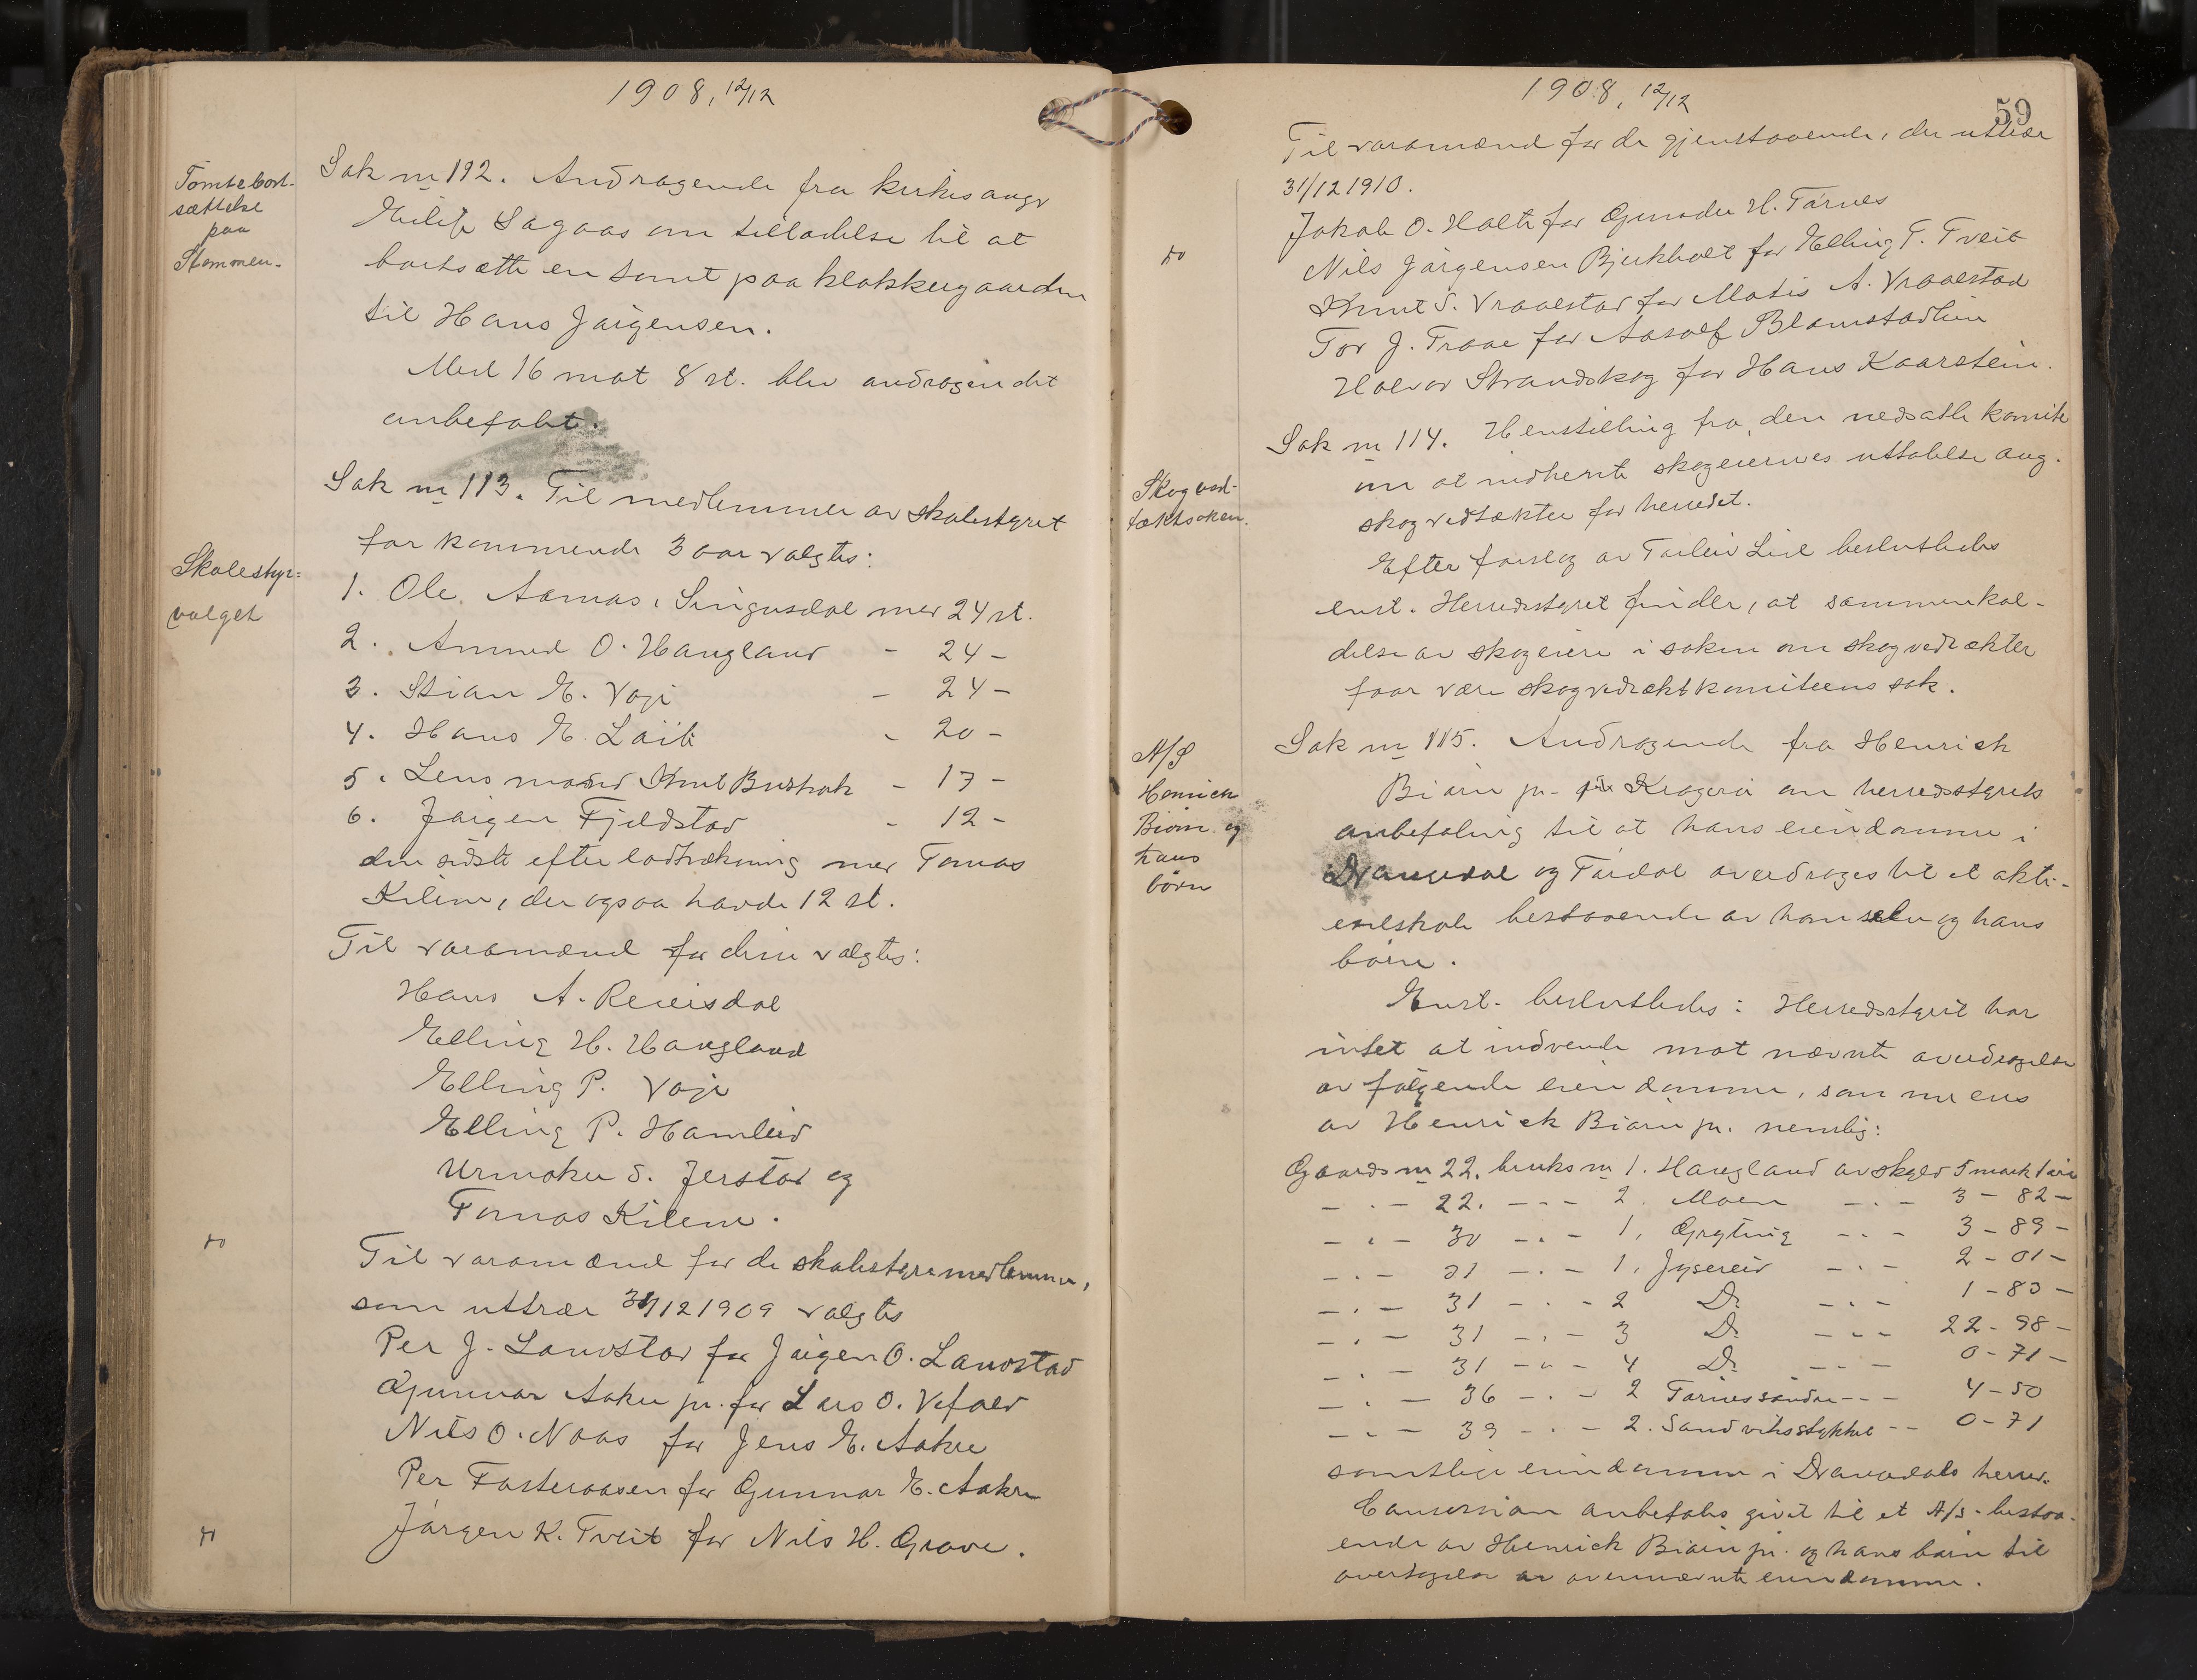 1908, 12/12
Tomtebort-
sættelse
paa
Stemmen.
Sak nr 112. Andragende fra kirkesangr
Eilif Sagaas om tilladelse til at
bortsætte en tomt paa klokkergaarden
til Hans Jørgensen.
Med 16 mot 8 st. blev andragendet
anbefalt.
Sak nr 113. Til medlemmer av skolestyret
for kommende 3 aar valgtes:
Skolestyr=
valget
1. Ole Aarnas, Singusdal med 24 st.
2. Anund O. Haugland - 24 -
3. Stian E. Voje - 24 -
4. Hans E. - 20 -
5. Lensmand Knut Bushok - 17 -
6. Jørgen Fjeldstad - 12 -
den sidste efter lodtrækning med Tomas
Kilem, der ogsaa havde 12 st.
Til varamænd for disse valgtes:
Hans A. Reiersdal
Elling H. Haugland
Elling P. Voje
Elling P. Hamleid
S. Jerstad og
Tomas Kilem.
do
Til varamænd for de skolestyremedlemmer,
som uttrær 31/12 1909 valgtes
Per J. Landstad for Jørgen O. Landstad
Gunnar Aakre jr. for Lars O. Vefald
Nils O. Naas for Jens E. Aakre
Per Fosteraasen for Gunnar E. Aakre
do
Jørgen K. Tveit for Nils H. Grave.
1908, 12/12
59
Til varamænd for de gjenstaaende, der uttrær
31/12 1910.
Jakob O. Holte for Gunder H. Tørnes
do
Nils Jørgensen Bjerkholt for Elling T. Tveit
Knut S. Vraalstad for Matis A. Vraalstad
Tor J. Traae for Aasolf Blamstadlien
Halvor Strandskog for Hans Kaarstein.
Sak nr 114. Henstilling fra den nedsatte komite
Skogved-
tæktsaken.
om at indhente skogeiernes uttalelse ang.
skogvedtækter for herredet.
Efter forslag av Torleiv Lie besluttedes
enst. Herredsstyret finder, at sammenkal-
delse av skogeiere i saken om skogvedtækter
faar være skogvedtæktkomiteens sak.
A/S
Henrich
Biørn og
hans
børn
Sak nr 115. Andragende fra Henrich
Biørn jr. Kragerø om herredsstyrets
anbefaling til at hans eiendomme i
Drangedal og Tørdal overdrages til et akti-
eselskab bestaaende av ham selv og hans
børn.
Enst. besluttedes: Herredsstyret har
intet at indvende mot nævnte overdragelse
av følgende eiendomme, som nu eies
av Henrich Biørn jr. nemlig:
Gaards nr 22. bruks nr 1. Haugland av skyld 5 mark 1 øre
- . - 22. - . - 2. Moen - . - 3 - 82 -
- . - 30 - . - 1, Gryting - . - 3 - 89 -
- . - 31 - . - 1, Jysereid - . - 2 - 01 -
- . - 31 - . - 2 Do - . - 1 - 83 -
- . - 31 - . - 3 Do - . - 22 - 98 -
- . - 31 - . - 4 Do - . - 0 - 71 -
- . - 36 - . - 2 Tørnes søndre - - - 4 - 50
- . - 39 - . - 2. Sandviksstykket - - 0 - 71
samtlige eiendomme i Drangedals herred.
Concession anbefales givet til et A/S - bestaa-
ende av Henrich Biørn jr. og hans børn til
overtagelse av ovennævnte eiendomme.